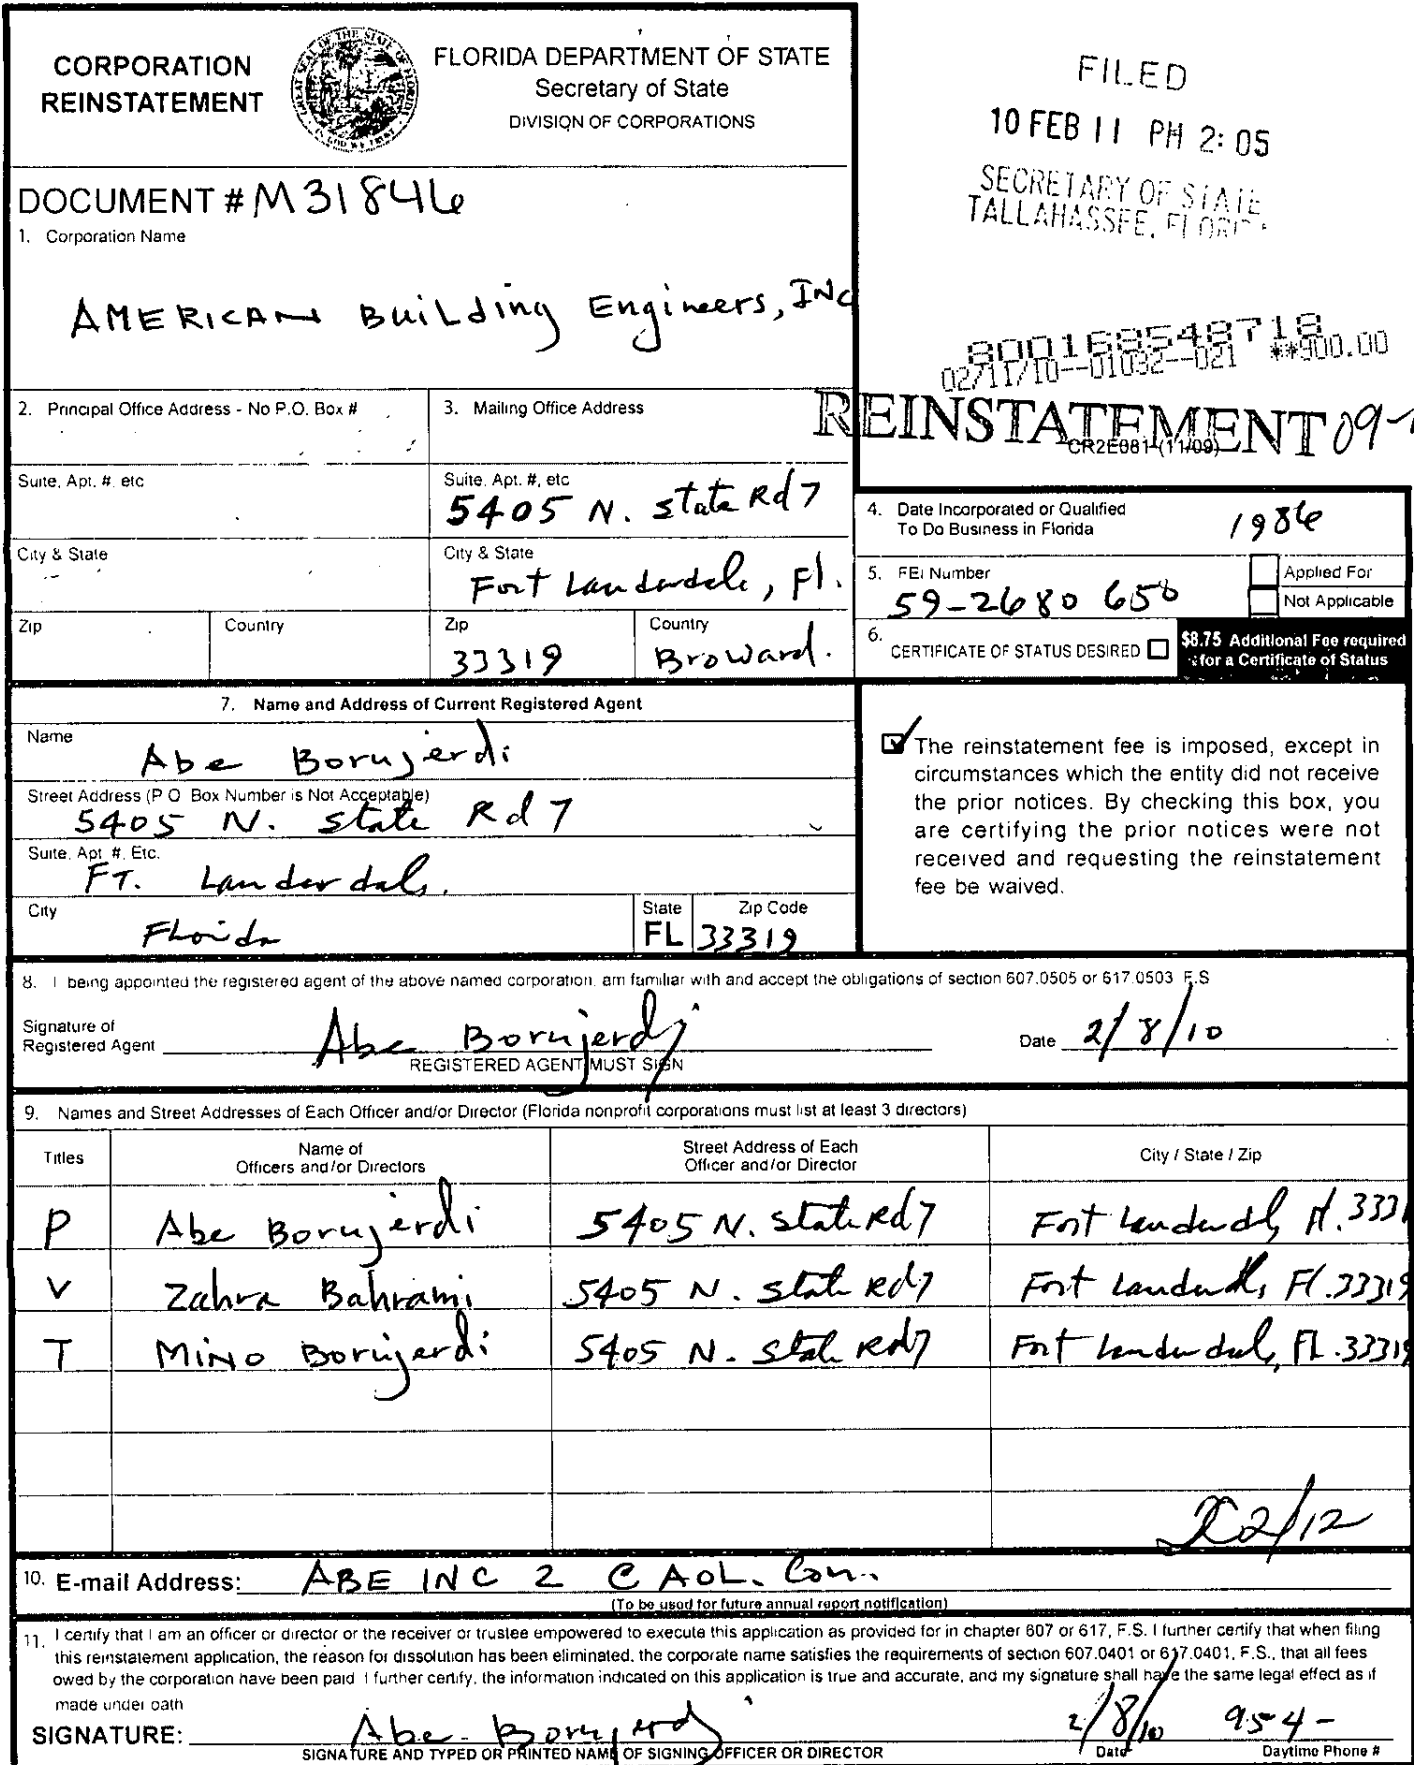 CORPORATION
REINSTATEMENT
FLORIDA DEPARTMENT OF STATE
Secretary of State
DIVISION OF CORPORATIONS
FILED
10 FEB 11 PM 2:05
SECRETARY OF STATE
TALLAHASSEE, FLORIDA
DOCUMENT # M31846
1. Corporation Name
AMERICAN Building Engineers, INC
800168548718
02/11/10--01032--021 **900.00
REINSTATEMENT 09-1
CR2E081 (11/09)
2. Principal Office Address - No P.O. Box #
3. Mailing Office Address
Suite, Apt. #, etc
Suite, Apt. #, etc
5405 N. State Rd 7
City & State
City & State
Fort Lauderdale, Fl.
Zip
Country
Zip
33319
Country
Broward.
4. Date Incorporated or Qualified
To Do Business in Florida
1986
5. FEI Number
59-2680 650
Applied For
Not Applicable
6. CERTIFICATE OF STATUS DESIRED
$8.75 Additional Fee required
for a Certificate of Status
7. Name and Address of Current Registered Agent
Name
Abe Borujerdi
Street Address (P.O. Box Number is Not Acceptable)
5405 N. State Rd 7
Suite, Apt. #, Etc.
FT. Lauderdale.
City
Florida
State
FL
Zip Code
33319
The reinstatement fee is imposed, except in
circumstances which the entity did not receive
the prior notices. By checking this box, you
are certifying the prior notices were not
received and requesting the reinstatement
fee be waived.
8. I being appointed the registered agent of the above named corporation, am familiar with and accept the obligations of section 607.0505 or 617.0503 F.S
Signature of
Registered Agent
Abe Borujerdi
REGISTERED AGENT MUST SIGN
Date 2/8/10
9. Names and Street Addresses of Each Officer and/or Director (Florida nonprofit corporations must list at least 3 directors)
Titles
Name of
Officers and/or Directors
Street Address of Each
Officer and/or Director
City / State / Zip
P Abe Borujerdi 5405 N. State Rd 7 Fort Lauderdale, Fl. 3331
V Zahra Bahrami 5405 N. State Rd 7 Fort Lauderdale, Fl. 33319
T Mino Borujerdi 5405 N. State Rd 7 Fort Lauderdale, FL. 33319
2/12
10. E-mail Address: ABE INC 2 @ AOL. Com.
(To be used for future annual report notification)
11. I certify that I am an officer or director or the receiver or trustee empowered to execute this application as provided for in chapter 607 or 617, F.S. I further certify that when filing
this reinstatement application, the reason for dissolution has been eliminated, the corporate name satisfies the requirements of section 607.0401 or 617.0401, F.S., that all fees
owed by the corporation have been paid. I further certify, the information indicated on this application is true and accurate, and my signature shall have the same legal effect as if
made under oath
SIGNATURE: Abe Borujerdi 2/8/10 954-
SIGNATURE AND TYPED OR PRINTED NAME OF SIGNING OFFICER OR DIRECTOR
Date
Daytime Phone #